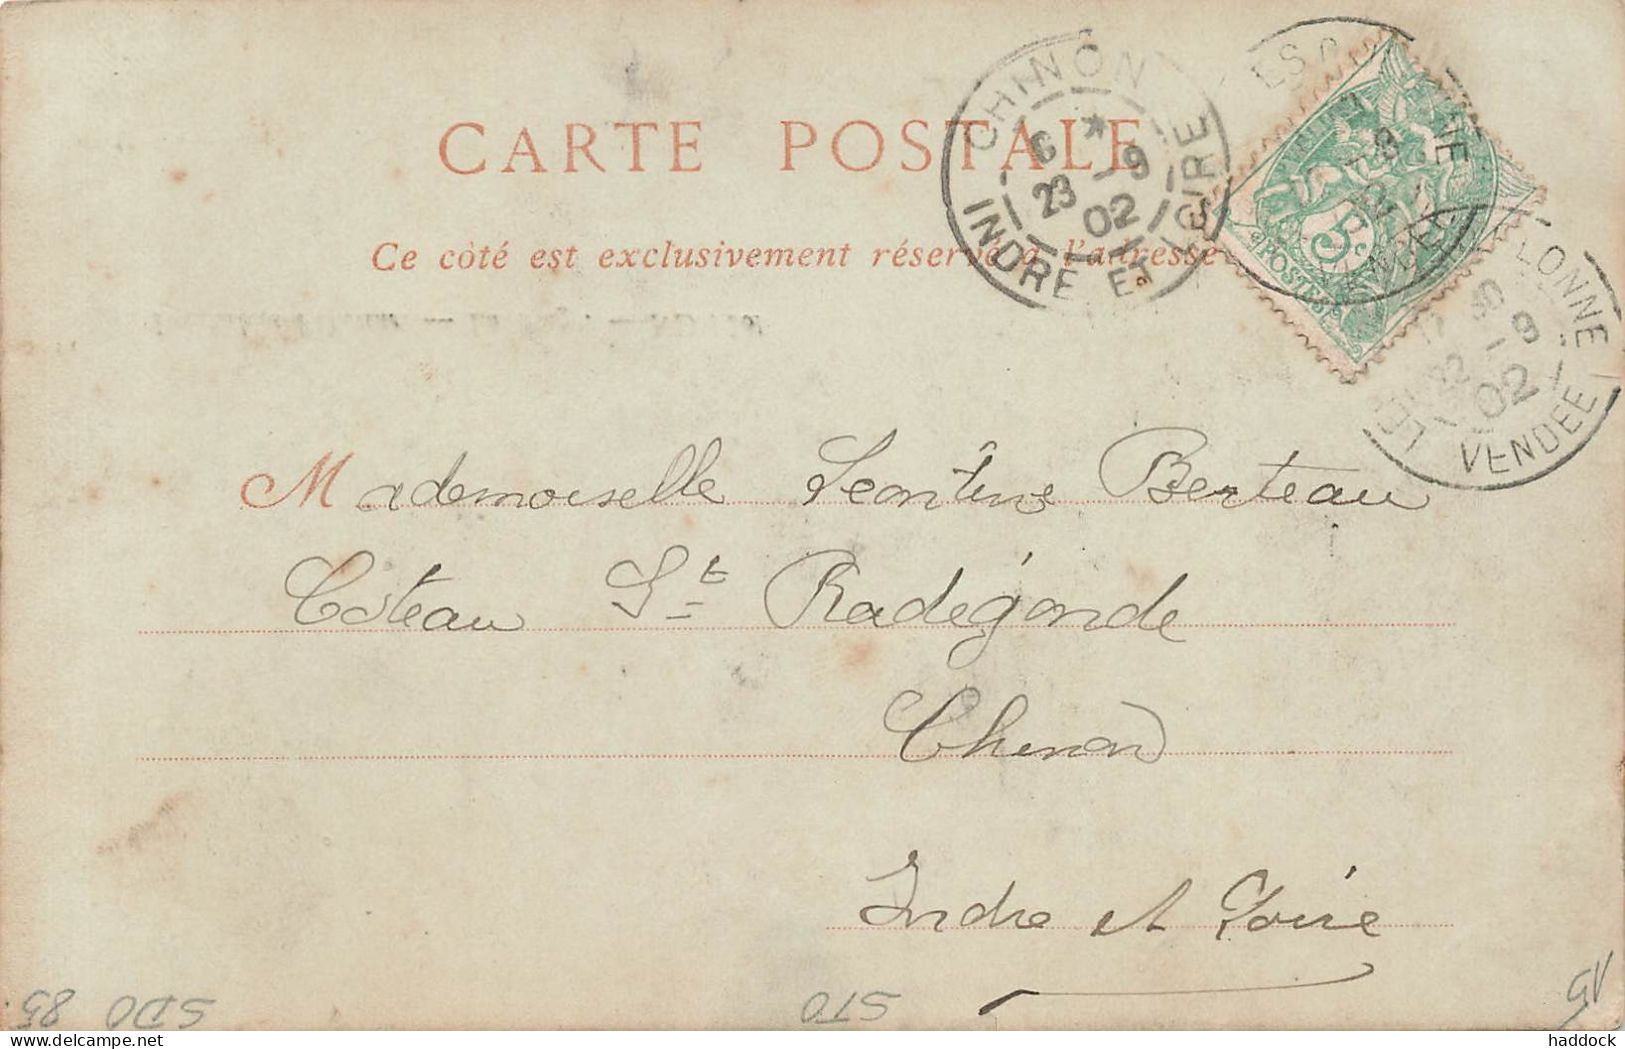 CARTE POSTALE
Ce côté est exclusivement réservé à l'adresse
CHINON
6 *
23 - 9
02
INDRE ET LOIRE
5c
POSTES
LES
9
02
VENDEE
LONNE
22 - 9
02
VENDEE
Mademoiselle Léontine Berteau
Coteau St Radégonde
Chinon
Indre et Loire
85 SDO
STO
15
haddock